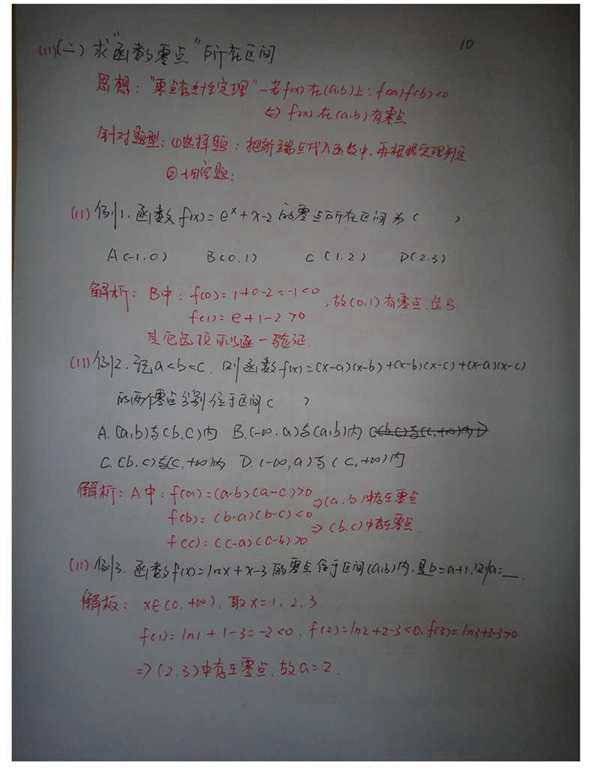 10
(11)(二) 求“函数零点”所在区间
思想：“零点存在性定理”—若f(x)在(a,b)上：f(a)f(b)<0
⇔ f(x)在(a,b)有零点
针对题型：①选择题：把所端点代入函数中，再根据定理判定
②填空题：
(11) 例1. 函数f(x)=e^x+x-2的零点所在区间为（ ）
A(-1,0) B(0,1) C(1,2) D(2,3)
解析：B中：f(0)=1+0-2=-1<0
f(1)=e+1-2>0 ，故(0,1)有零点，选B
其它选项可以逐一验证.
(11) 例2. 记a<b<c. 则函数f(x)=(x-a)(x-b)+(x-b)(x-c)+(x-a)(x-c)
的两个零点分别位于区间（ ）
A.(a,b)与(b,c)内 B.(-∞,a)与(a,b)内 C(b,c)与(c,+∞)内 D
C.(b,c)与(c,+∞)内 D.(-∞,a)与(c,+∞)内
解析：A中：f(a)=(a-b)(a-c)>0 ⇒(a,b)中存在零点
f(b)=(b-a)(b-c)<0 ⇒(b,c)中存在零点
f(c)=(c-a)(c-b)>0
(11) 例3. 函数f(x)=lnx+x-3的零点位于区间(a,b)内，且b=a+1,则a=__.
解析：x∈(0,+∞)，取x=1,2,3
f(1)=ln1+1-3=-2<0，f(2)=ln2+2-3<0，f(3)=ln3+3-3>0
⇒(2,3)中存在零点，故a=2.